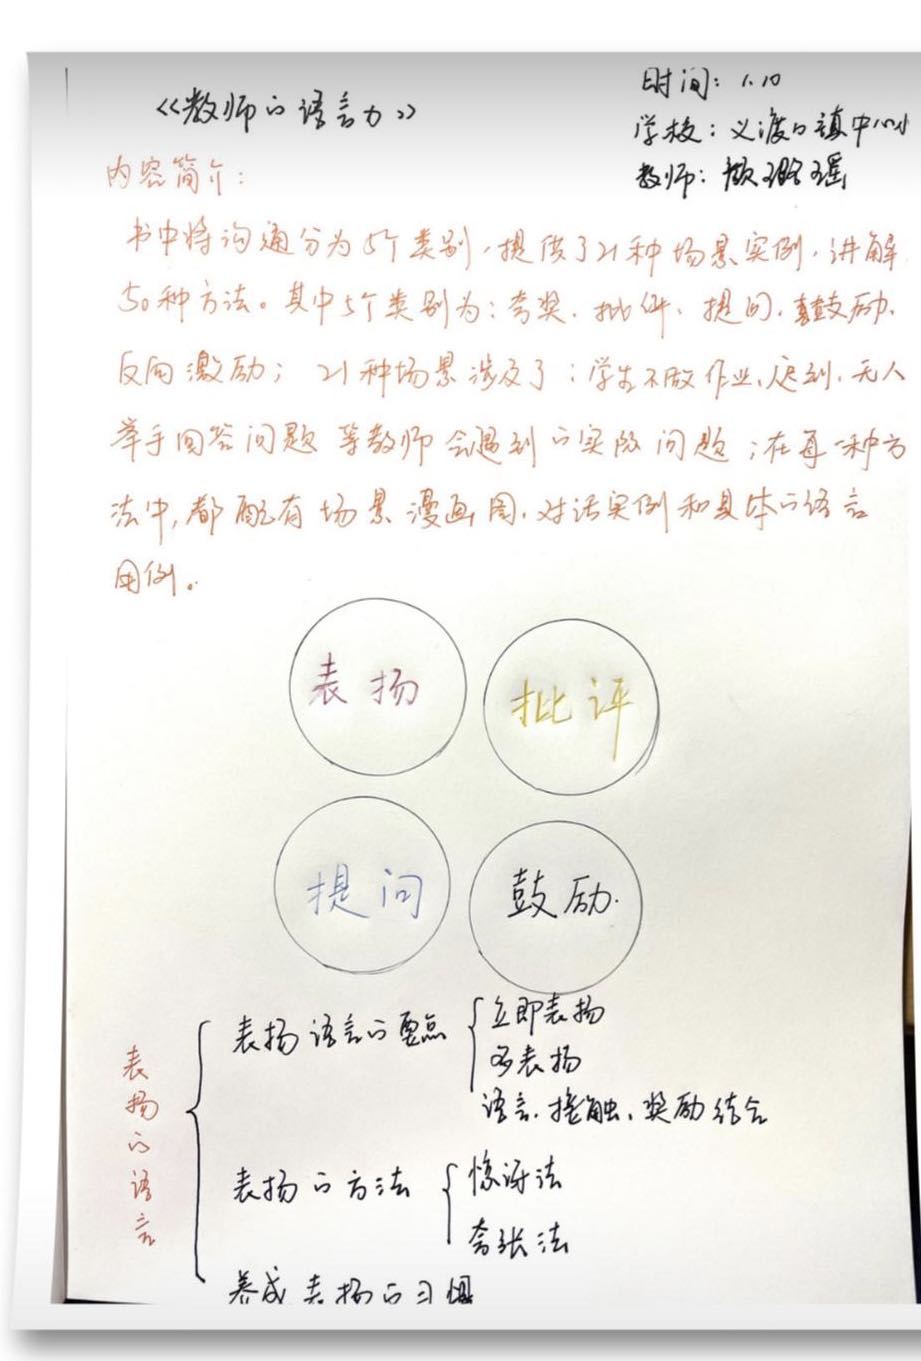 《教师的语言力》
时间：1.10
学校：义渡口镇中心小
教师：颜璐瑶
内容简介：
书中将沟通分为5个类别，提供了21种场景实例，讲解
50种方法。其中5个类别为：夸奖、批评、提问、鼓励、
反向激励；21种场景涉及了：学生不做作业、迟到、无人
举手回答问题等教师会遇到的实际问题；在每一种方
法中，都配有场景漫画图，对话实例和具体的语言
用例。
表扬
批评
提问
鼓励
表扬的语言
表扬语言的要点
立即表扬
多表扬
语言、接触、奖励结合
表扬的方法
惊讶法
夸张法
养成表扬的习惯